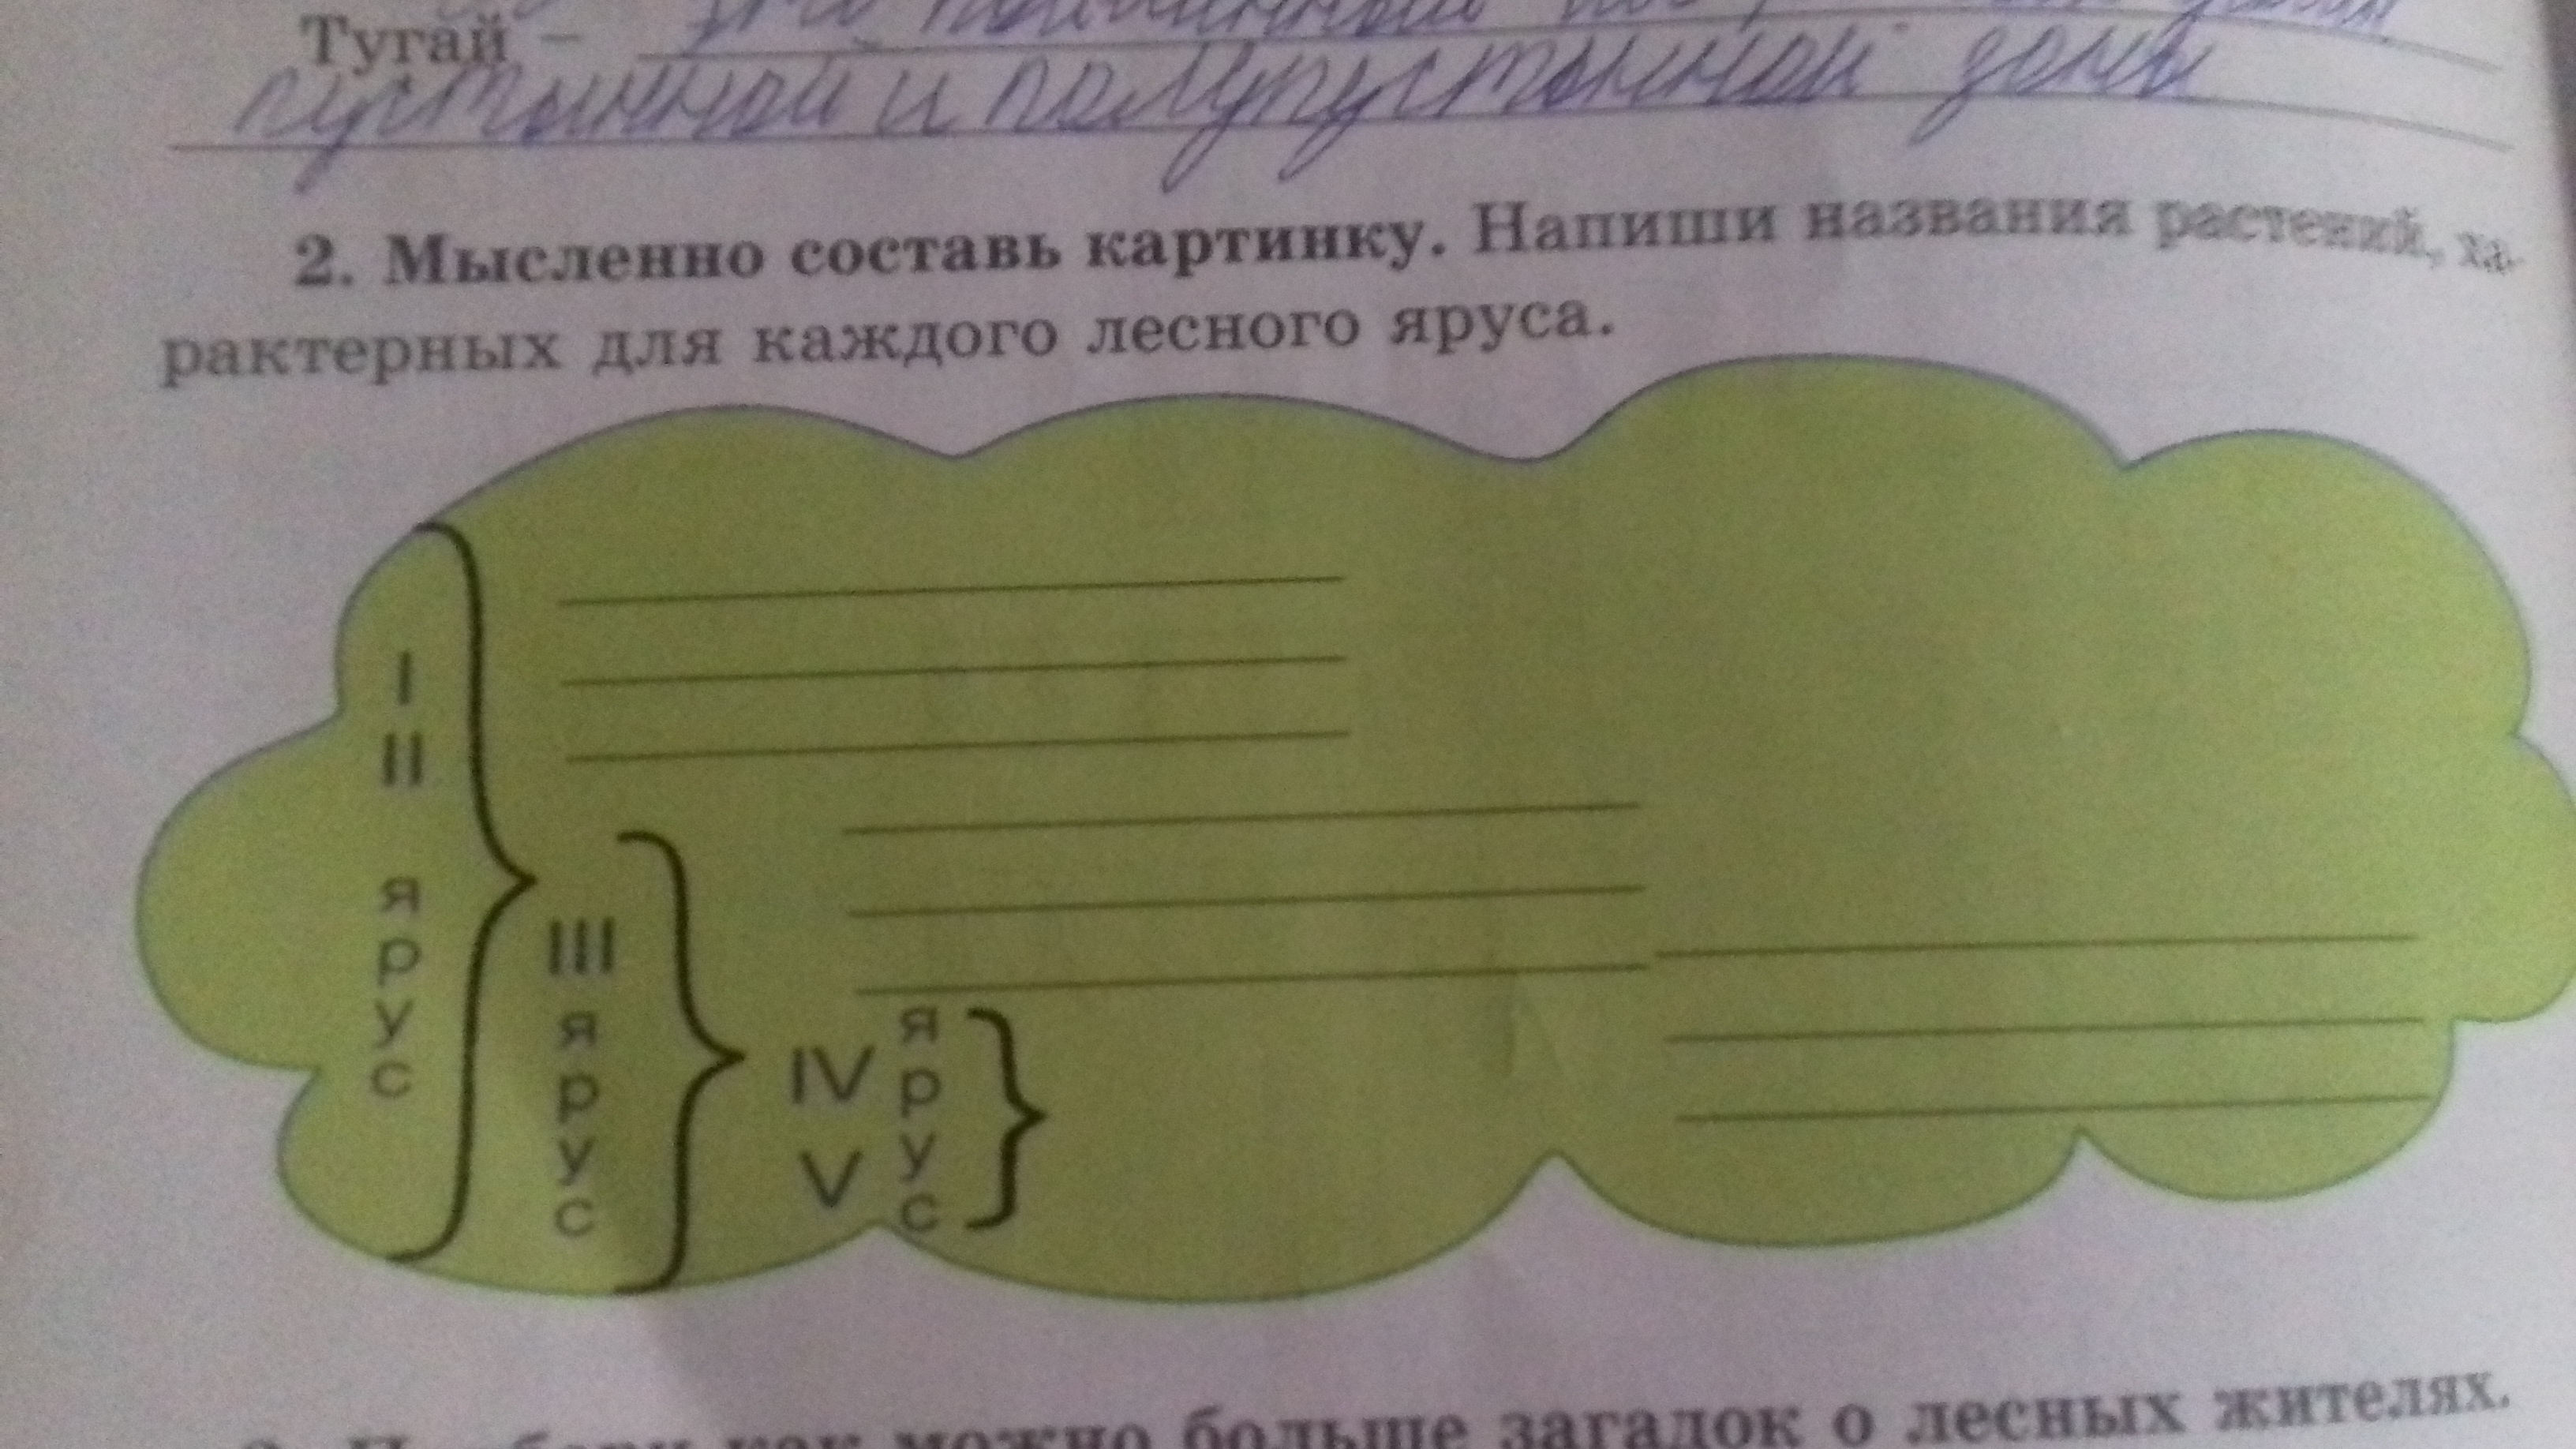 Тугай – это
пустынной и полупустынной зоны
2. Мысленно составь картинку. Напиши названия растений, ха-
рактерных для каждого лесного яруса.
I
II
ярус
III
ярус
IV
V
ярус
как можно больше загадок о лесных жителях.